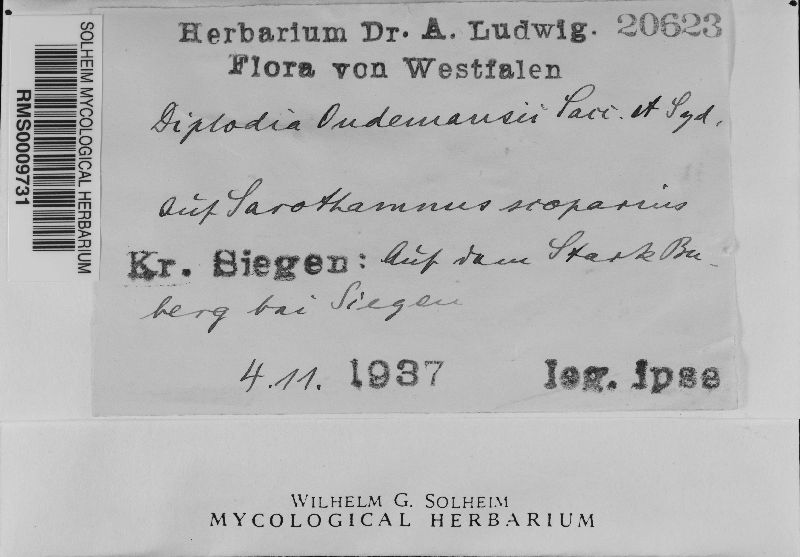 Herbarium Dr. A. Ludwig. 20623
Flora von Westfalen
Diplodia Oudemansii Sacc. et Syd.
auf Sarothamnus scoparius
Kr. Siegen: Auf dem
berg bei Siegen
4.11. 1937 leg. ipse
SOLHEIM MYCOLOGICAL HERBARIUM
RMS0009731
WILHELM G. SOLHEIM
MYCOLOGICAL HERBARIUM